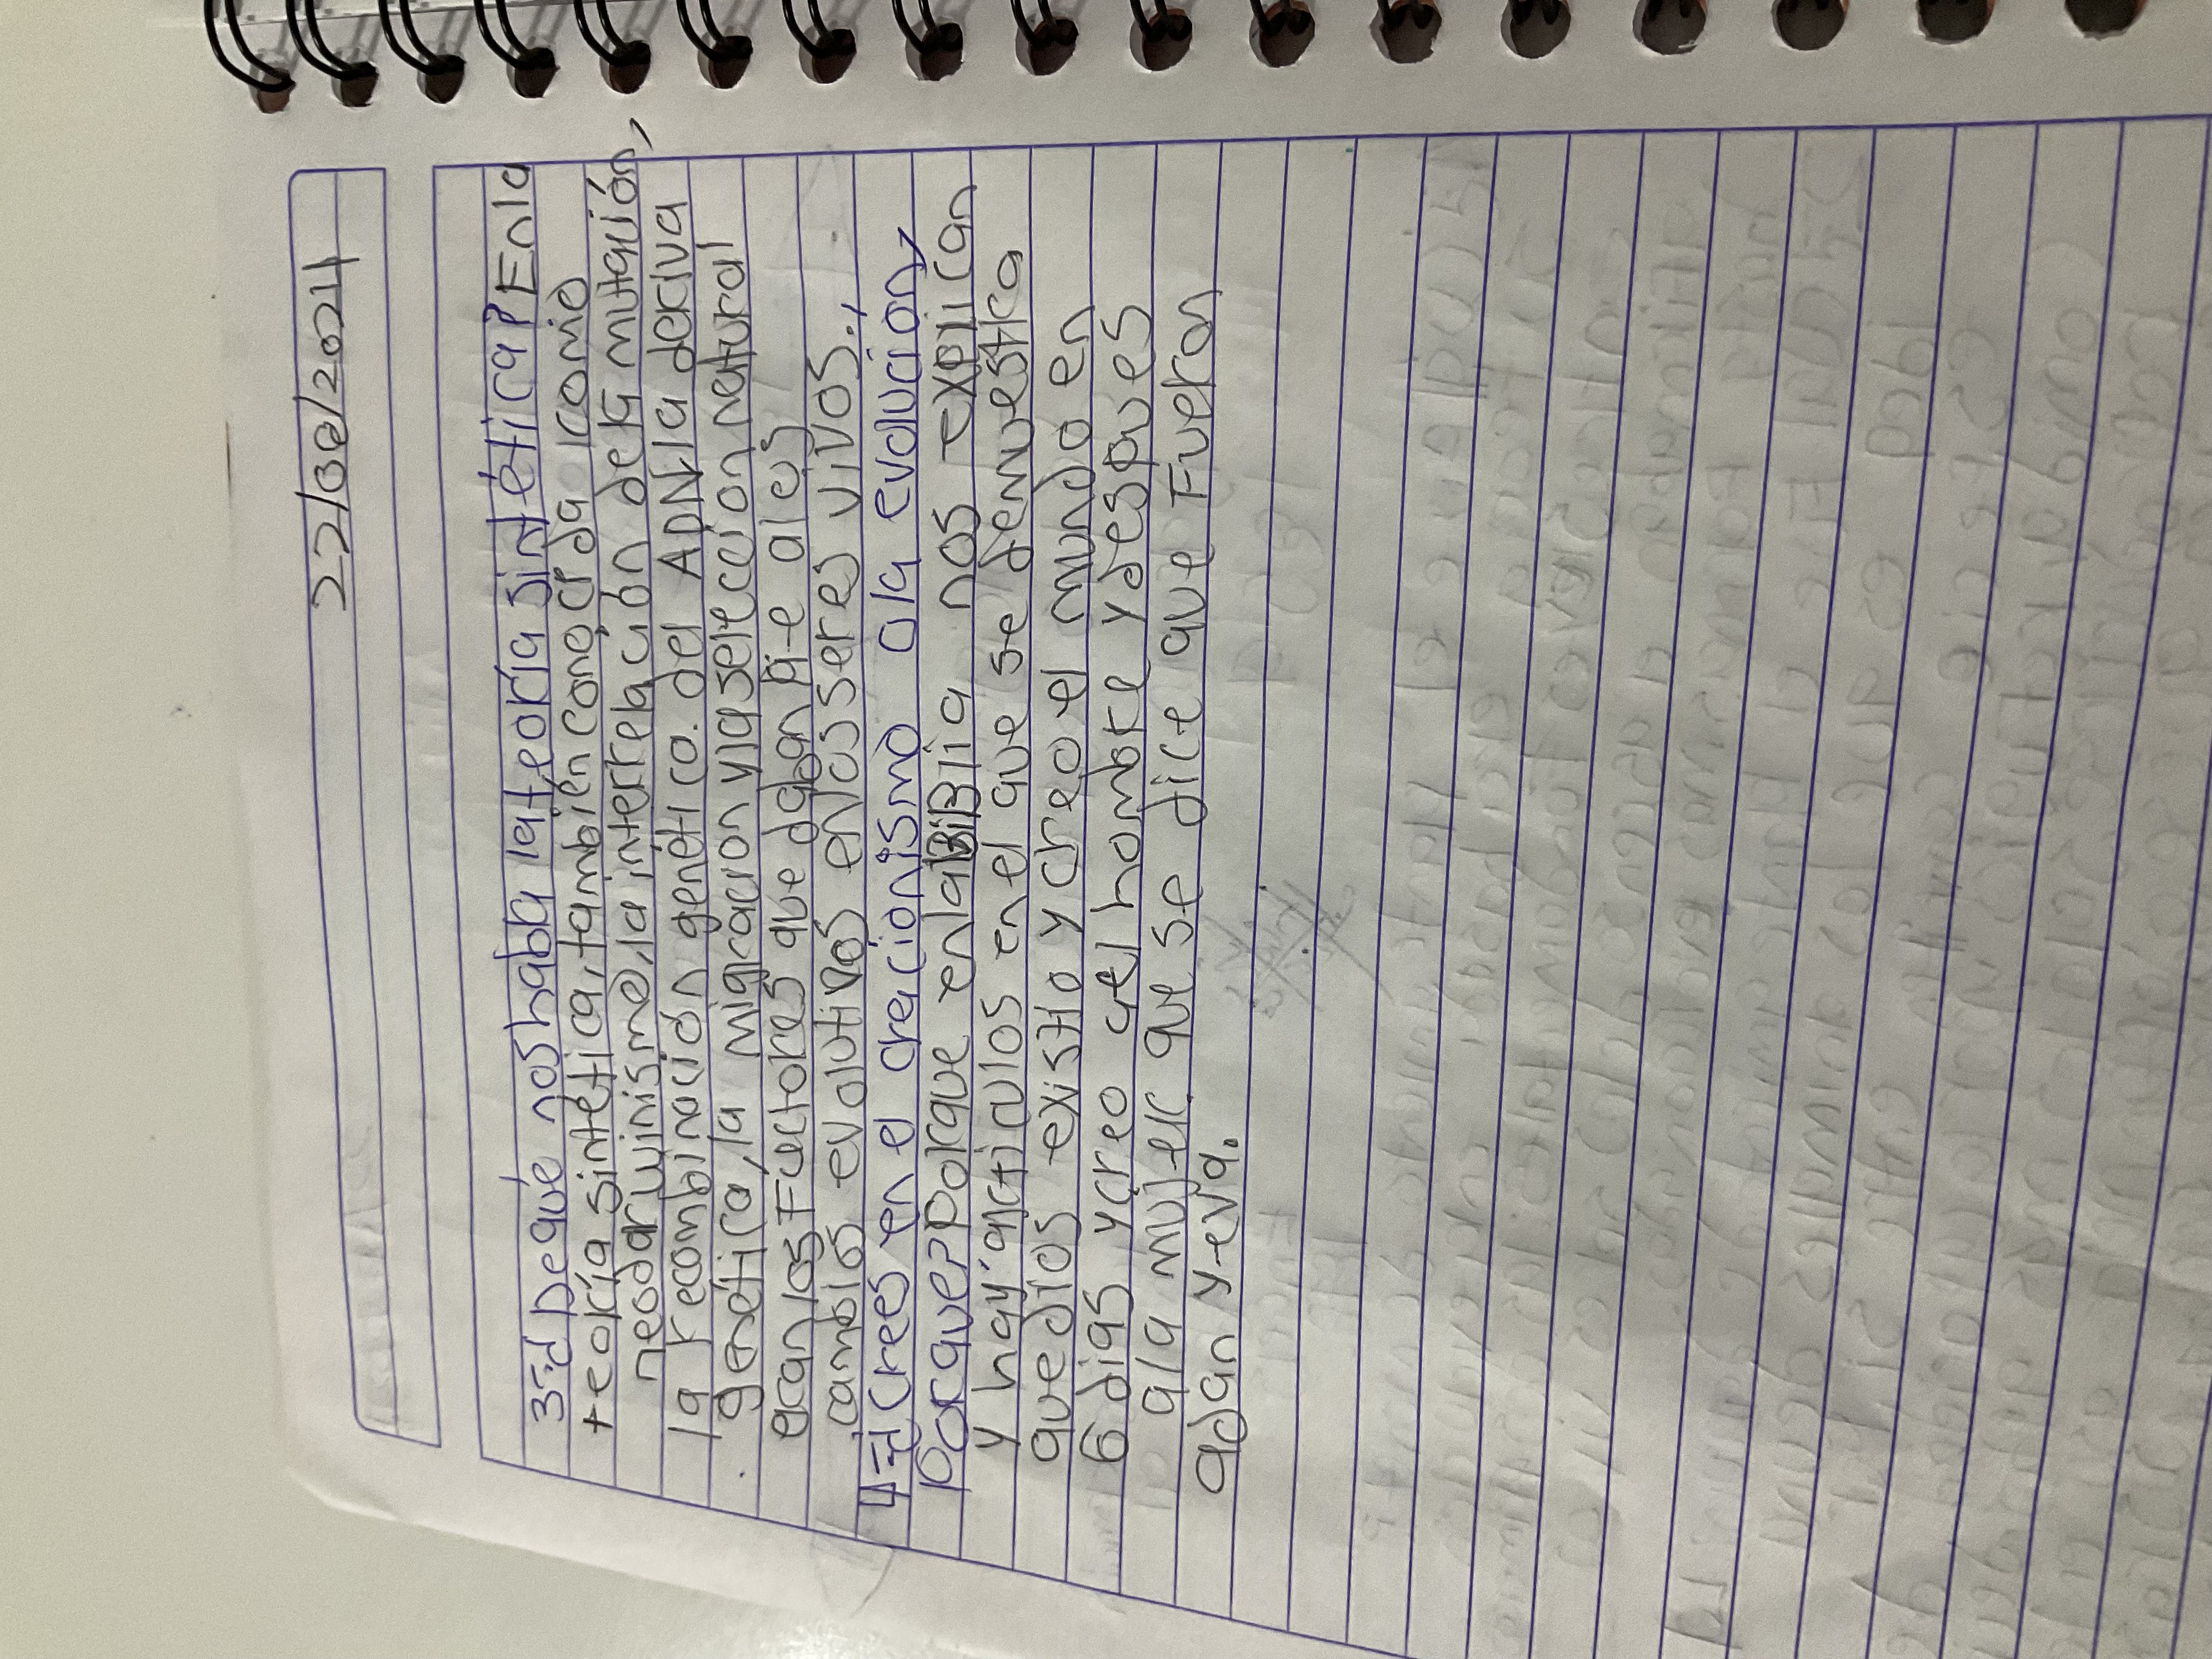 22/08/2024
3=¿De qué nos habla la teoría sintética? En la
teoría sintética, también conocida como
neodarwinismo, la interrelación de la mutación,
la recombinación genética. del ADN, la deriva
genética, la migracion y la selección natural
eran los Fuctores que daban pi-e a los
cambios evolutivos en los seres vivos..
4=¿Crees en el creacionismo o la evolución,
Porque? Porque en la BiBlia nos explican
y hay articulos en el que se demuestra
que dios existio y creo el mundo en
6 dias y creo al hombre y despues
a la mujer que se dice que Fueron
adan y eva.